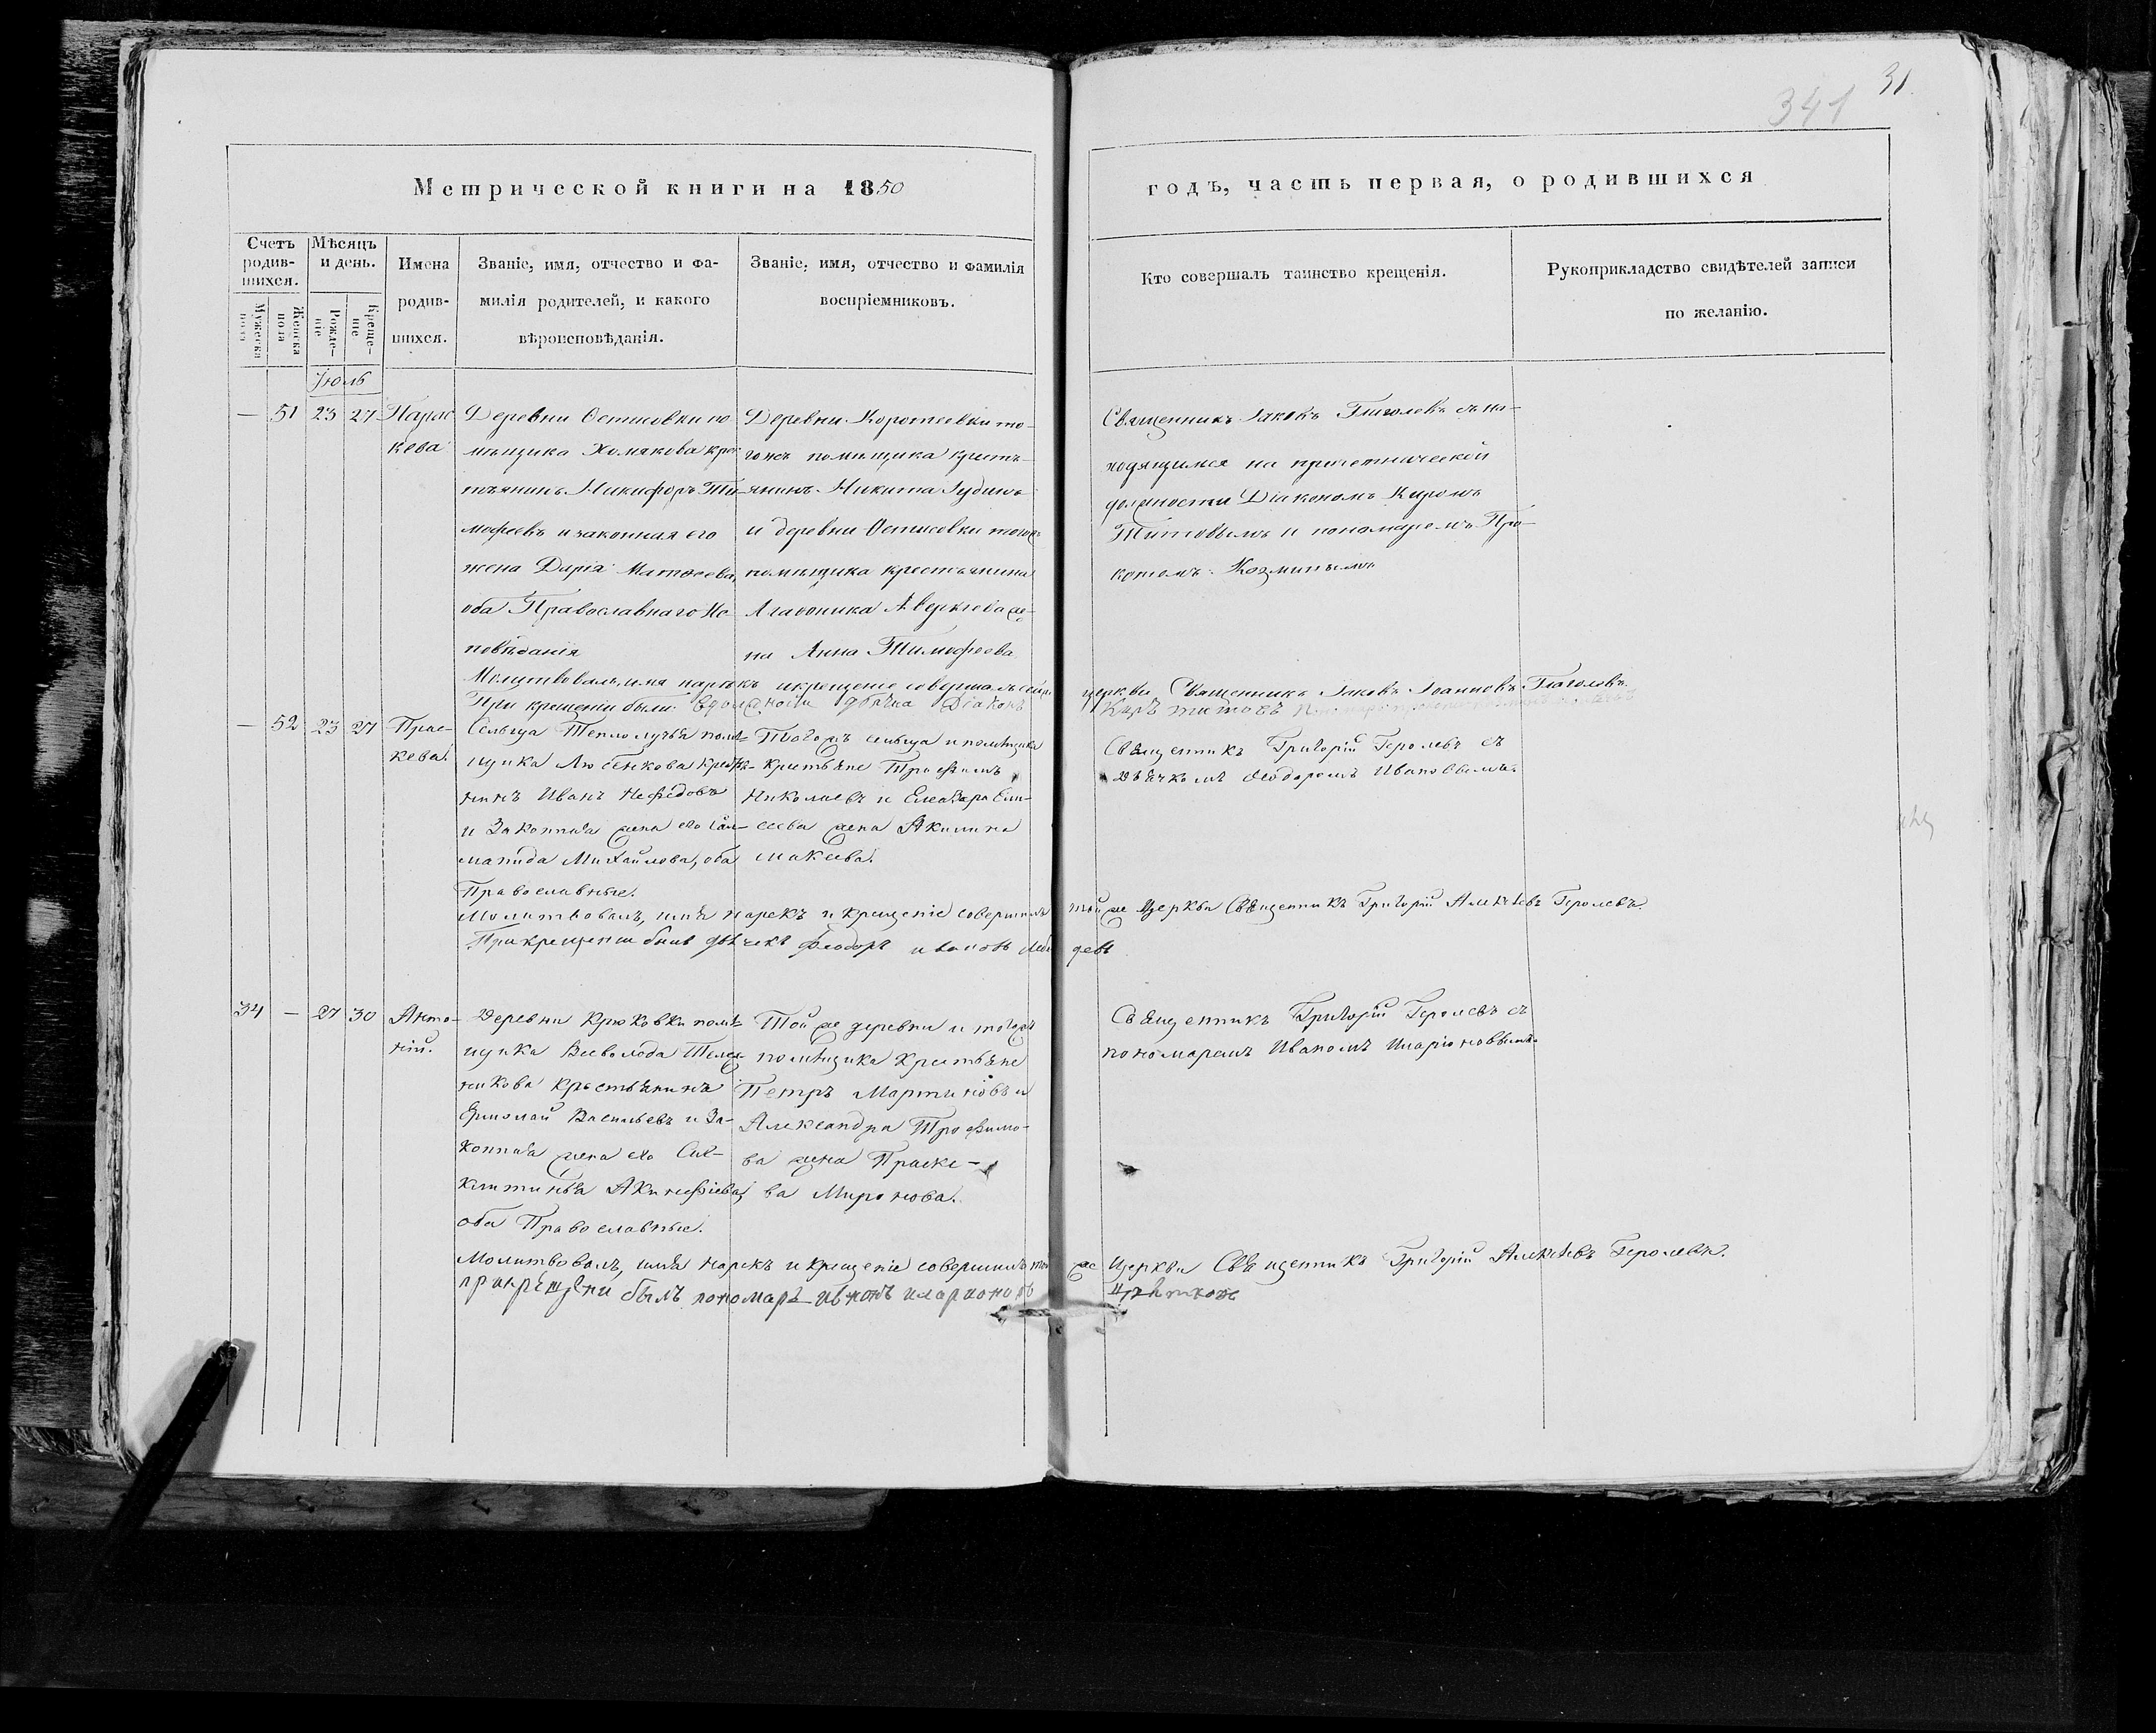 31.
341
Метрической книги на 1850
годъ, часть первая, о родившихся
Счетъ родив-шихся.
Мѣсяцъ и день.
Имена родив-шихся.
Званіе, имя, отчество и фа-
милія родителей, и какого
вѣроисповѣданія.
Званіе, имя, отчество и фамилія
воспріемниковъ.
Кто совершалъ таинство крещенія.
Рукоприкладство свидѣтелей записи
по желанію.
Мужеска пола
Женска пола
Рожде-ніе
Креще-ніе
Іюль
— 51 23 27
Парас
кева
Деревни по
мѣщика Хомякова крес
тьянинъ Никифоръ Ти
мофеевъ и законная его
жена Дарія Матвеева,
оба Православнаго Ис
повѣданія
Деревни Коротеевки то-
гожъ помѣщика кресть-
янинъ Никита
и деревни тогожъ
помѣщика крестьянина
Агафоника Аверкіева же-
на Анна Тимофеева
Священникъ Іаковъ Глаголевъ съ на-
ходящимся на причетнической
должности Діакономъ Киромъ
Титовымъ и пономаремъ Про-
копомъ Козминымъ
Молитвовалъ, имя нарекъ и крещеніе совершалъ церкви Священникъ Іаковъ Іоанновъ Глаголевъ.
При крещеніи были: дьячка Діаконъ Киръ Титовъ
— 52 23 27
Прас-
кева.
Сельца Теплолучья помѣ-
щика кресть-
нинъ Иванъ Нефедовъ
и Законная жена его Сало-
манида Михайлова, оба
Православные.
Тогожъ сельца и помѣщика
Крестьяне Трофимъ
Николаевъ и Елеазара Ели-
сеева жена Акилина
Макеева.
Священникъ Григорій Геролевъ съ
дьячкомъ Феодоромъ Ивановымъ.
Молитвовалъ, имя нарекъ и крещеніе совершилъ той же Церкви Священникъ Григорій Алексѣевъ Геролевъ.
При крещеніи былъ дьячекъ Феодоръ Ивановъ
34 — 27 30
Анто-
ній.
Деревни Крюковки помѣ-
щика Всеволода
никова крестьянинъ
Ермолай Васильевъ и За-
конная жена его Сик-
клитикія Акинфіева,
оба Православные.
Той же деревни и тогожъ
помѣщика Крестьяне
Петръ Мартиновъ и
Александра Трофимо-
ва жена Праске-
ва Миронова.
Священникъ Григорій Геролевъ съ
пономаремъ Иваномъ Иларіоновымъ.
Молитвовалъ, имя нарекъ и крещеніе совершилъ той же Церкви Священникъ Григорій Алексѣевъ Геролевъ.
при крещени былъ пономарь иванъ иларионовъ